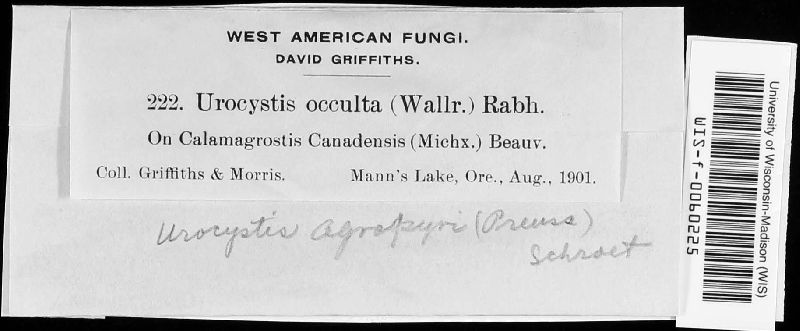 WEST AMERICAN FUNGI.
DAVID GRIFFITHS.
222. Urocystis occulta (Wallr.) Rabh.
On Calamagrostis Canadensis (Michx.) Beauv.
Coll. Griffiths & Morris. Mann's Lake, Ore., Aug., 1901.
Urocystis agropyri (Preuss)
Schroet
University of Wisconsin-Madison (WIS)
WIS-f-0060225